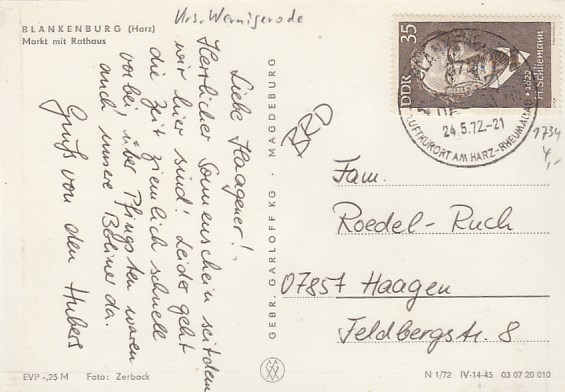 Krs. Wernigerode
BLANKENBURG (Harz)
Markt mit Rathaus
Liebe Haagener!
Herrlicher Sonnenschein seitdem
wir hier sind! Leider geht
die Zeit ziemlich schnell
vorbei, über Pfingsten waren
auch unsere da.
Gruß von den Hubers
EVP -,25 M Foto: Zerback
GEBR. GARLOFF KG · MAGDEBURG
DDR 35
1822 H. Schliemann
24.5.72.-21
LUFTKURORT AM HARZ-
1734
4,-
BRD
Fam.
Roedel-Ruch
07857 Haagen
Feldbergstr. 8
N 1/72 IV-14-45 03 07 20 010